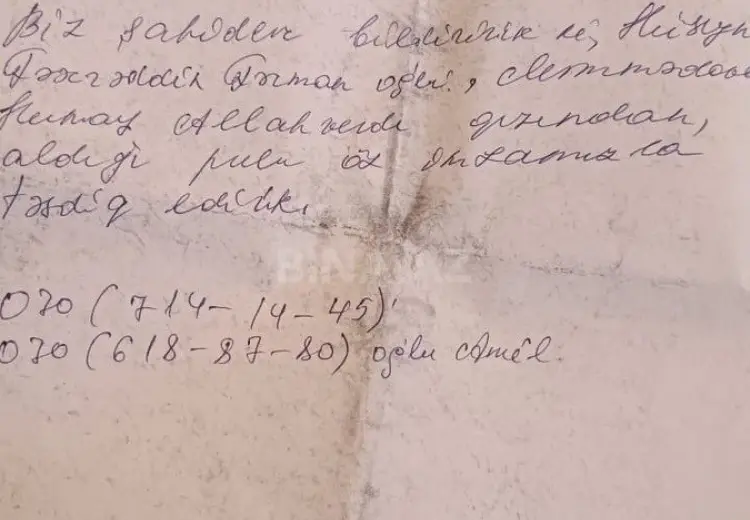 Biz şahidlər bildiririk ki, Hüseyn
Fəxrəddin Fərman oğlu, Məmmədova
Humay Allahverdi qızından,
aldığı pulu öz imzamızla
təsdiq edirik.
BİNAMAZ
070 (714-14-45)
070 (618-87-80) oğlu Amil.